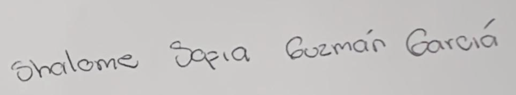 Shalome Sofia Guzmán Garciá